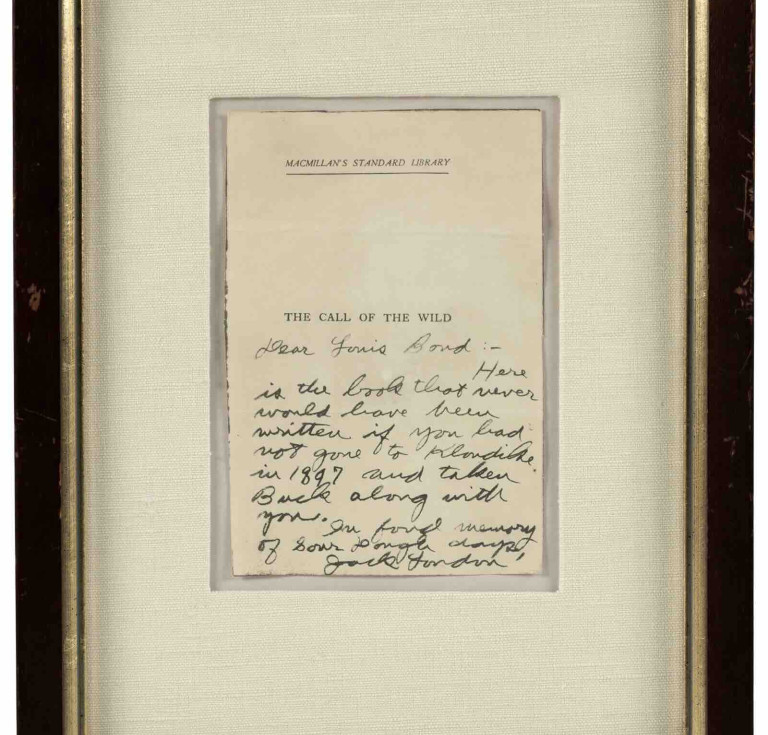 MACMILLAN'S STANDARD LIBRARY
THE CALL OF THE WILD
Dear Louis Bond :-
Here
is the book that never
would have been
written if you had
not gone to Klondike
in 1897 and taken
Buck along with
you.
In fond memory
of Sour Dough days,
Jack London